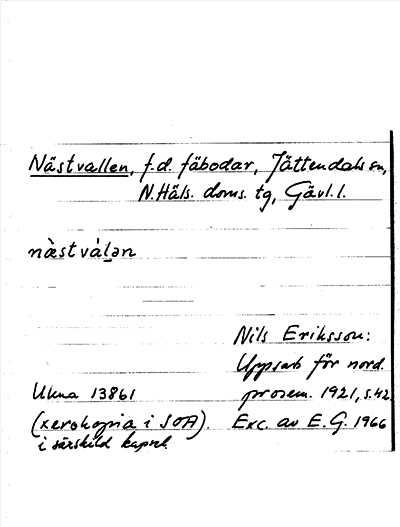 Nästvallen, f.d. fäbodar, Jättendals sn,
N. Häls. doms. tg, Gävl. l.
nǜstválən
Nils Eriksson:
Uppsats för nord.
prosem. 1921, s. 42
Exc. av E. G. 1966
Ukna 13861
(xerokopia i SOA).
i särskild kapsel.